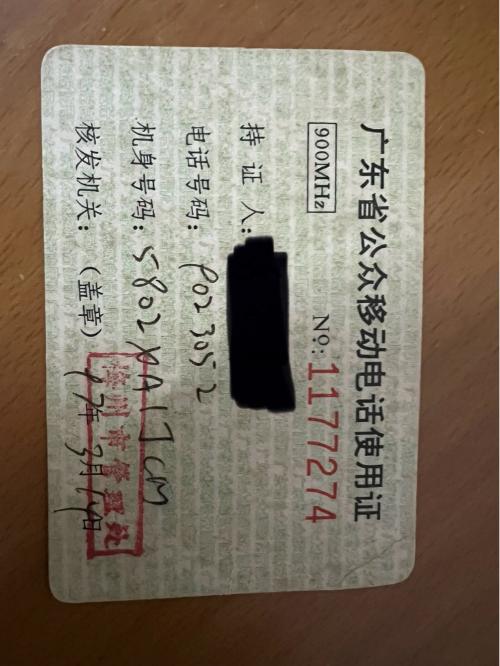 广东省公众移动电话使用证
900MHz
No:1177274
持证人:
电话号码: 9023052
机身号码: 5802XA17CM
核发机关: (盖章)
市管理处
97年3月14日